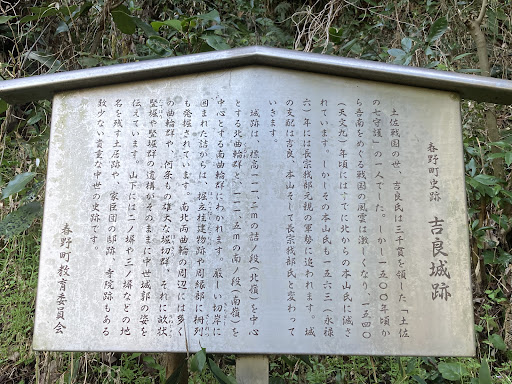 春野町史跡 吉良城跡
土佐戦国の世、吉良氏は三千貫を領した「土佐
の七守護」の一人でした。しかし一五〇〇年頃か
ら吾南をめぐる戦国の風雲は激しくなり、一五四〇
(天文九)年頃にはすでに北からの本山氏に滅さ
れています。しかしその本山氏も一五六三(永禄
六)年には長宗我部元親の軍勢に追われます。城
の支配は吉良、本山そして長宗我部氏と変わって
いきます。
城跡は、標高
の詰ノ段(北嶺)を中心
とする北曲輪群と、
の南ノ段(南嶺)を
中心とする南曲輪群にわかれます。厳しい切岸に
囲まれた詰からは、掘立柱建物跡や周縁部に柵列
も発掘されています。南北両曲輪の周辺には多く
の曲輪群や、何条もの雄大な堀切群、それに畝状
竪堀や竪堀群の遺構がそのままに中世城郭の姿を
伝えています。山下には二ノ塀や三ノ塀などの地
名を残す土居跡や、家臣団の邸跡、寺院跡もある
数少ない貴重な中世の史跡です。
春野町教育委員会